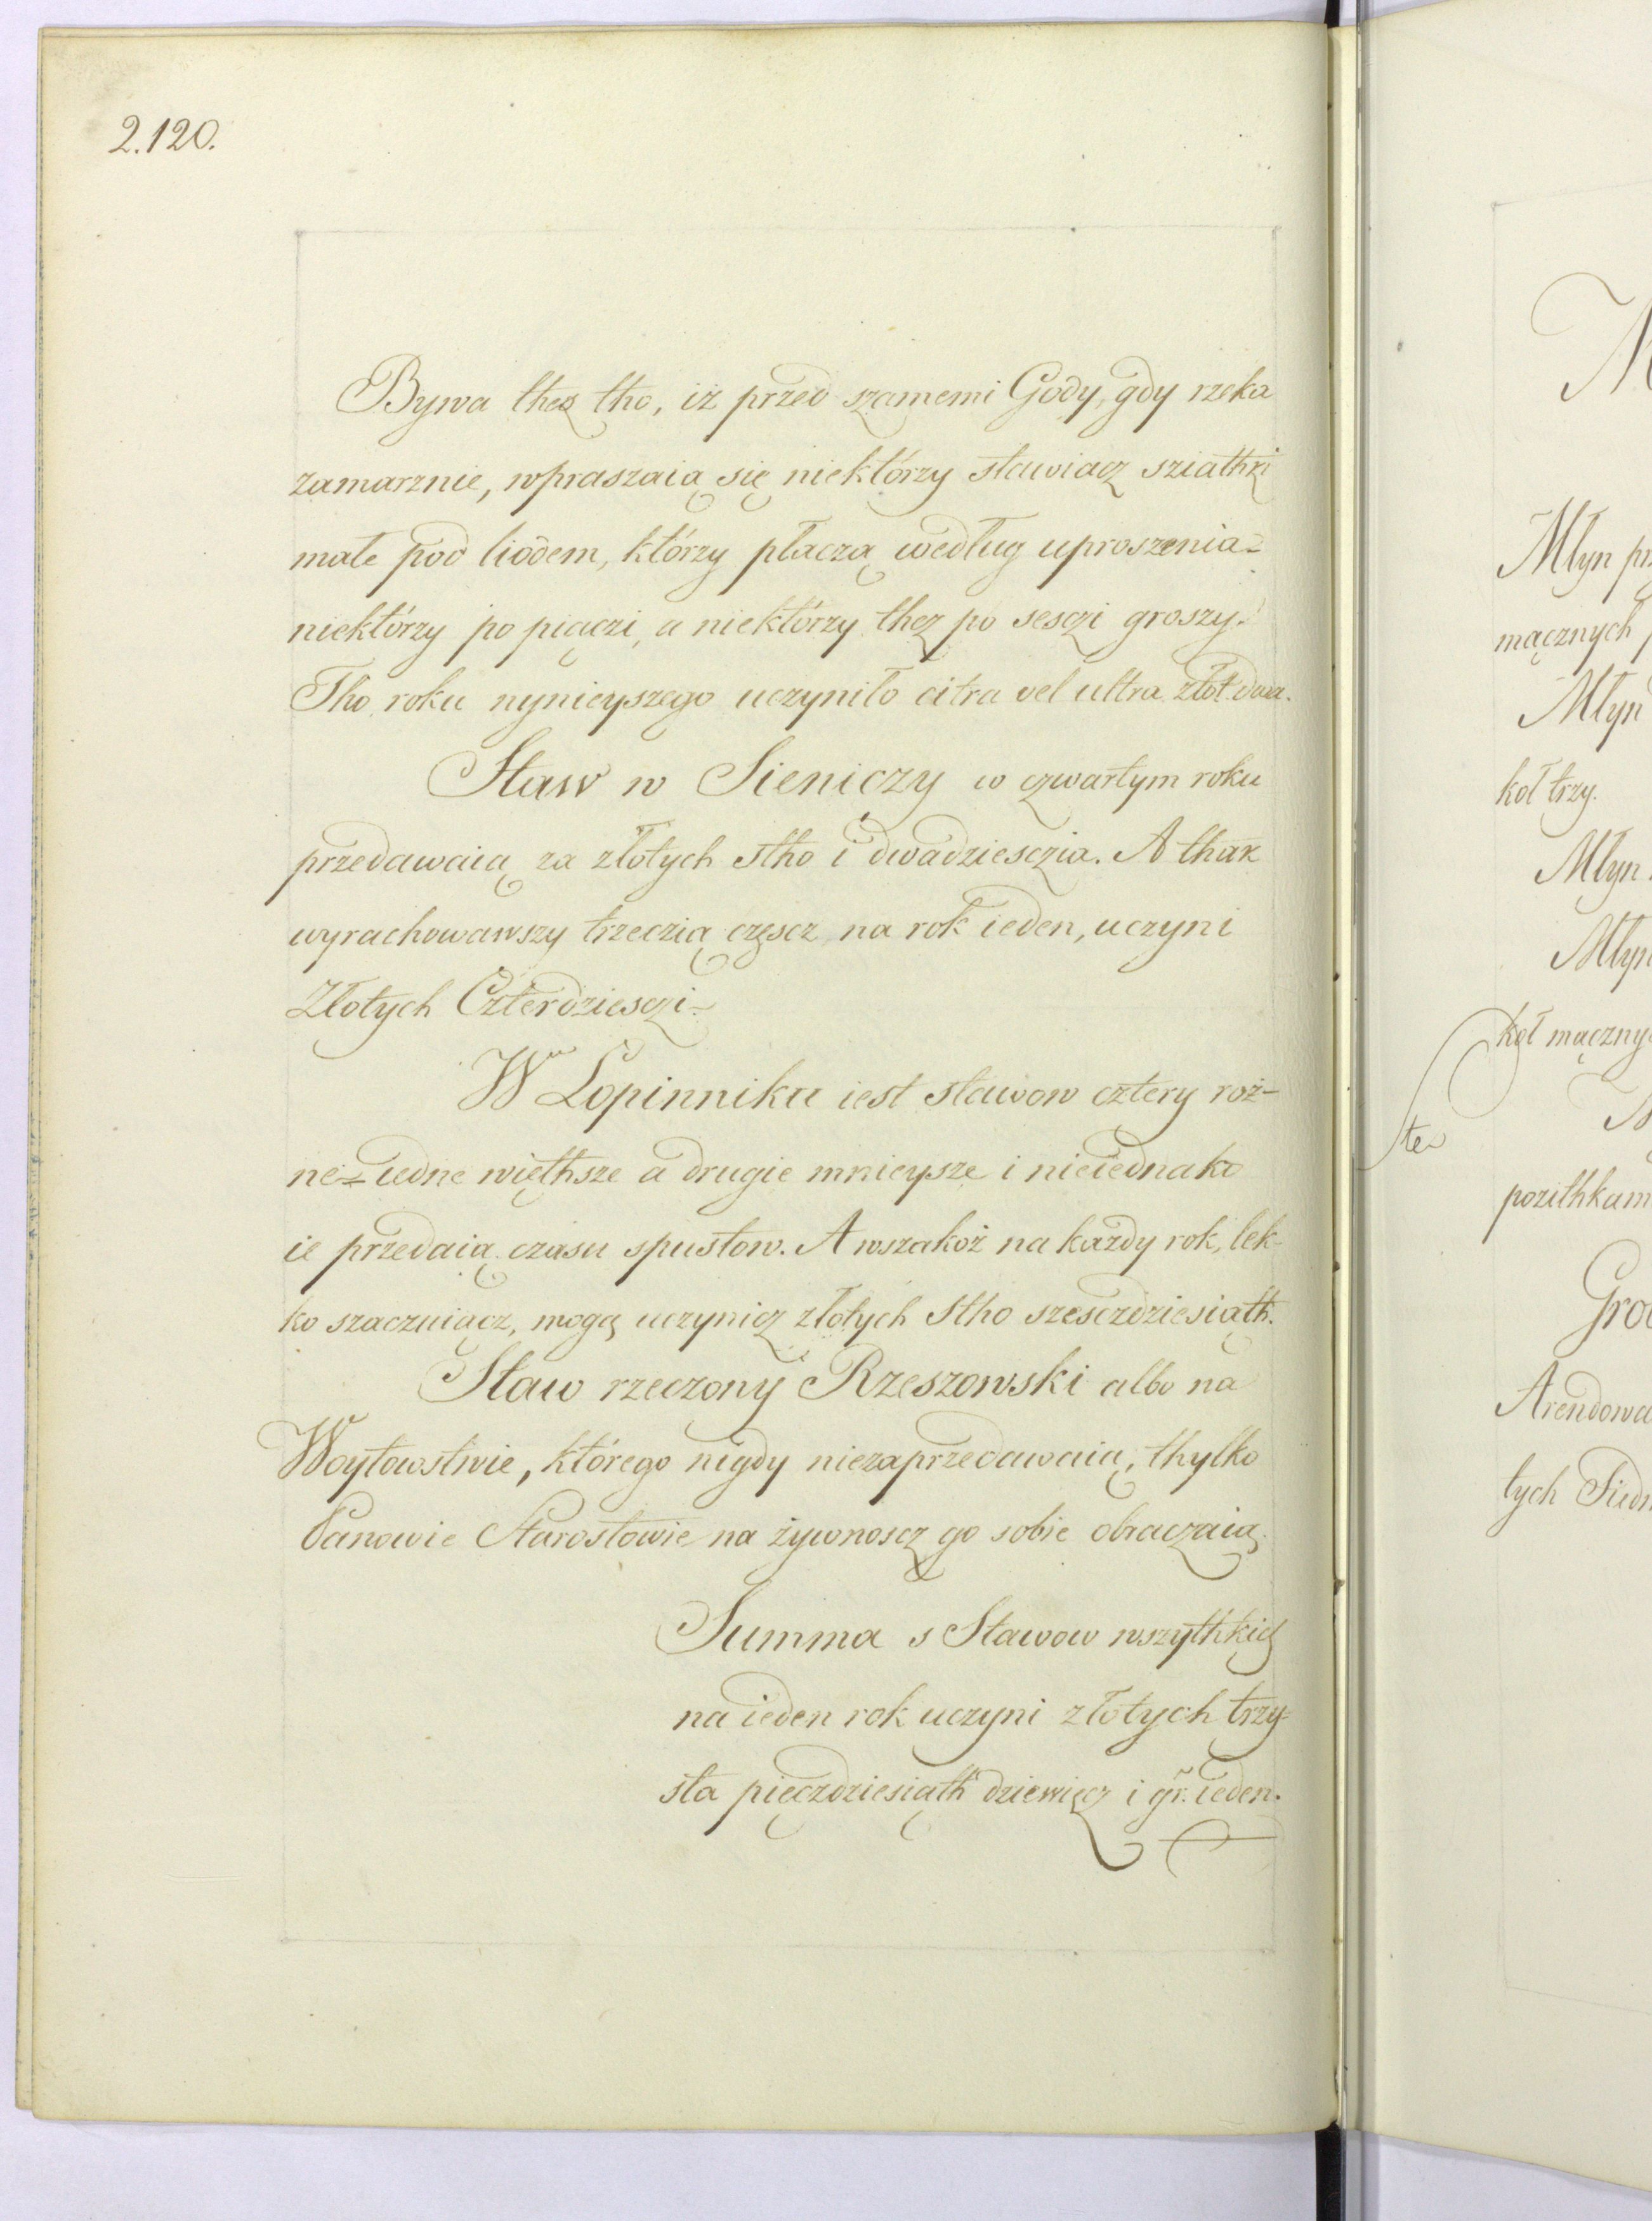 2.120.
Bywa thez tho, iż przed szamemi Gody, gdy rzeka
zamarznie, wpraszaią się niektórzy stawiacz sziathki
małe pod liodem, którzy płaczą według uproszenia
niektórzy po piączi, a niektórzy thez po sesczi groszy.
Tho roku nynieyszego uczyniło citra vel ultra złot. dwa.
Staw w Sieniczy w czwartym roku
przedawaią za złotych stho i dwadziesczia. A thak
wyrachowawszy trzeczią częscz na rok ieden, uczyni
Złotych Czterdziesczi
W Łopinniku iest stawow cztery roż-
ne iedne więthsze a drugie mnieysze i nieiednako
ie przedaią czasu spustow. A wszakoż na każdy rok, lek-
ko szaczuiącz, mogą uczynicz złotych stho szesczdziesiąth.
Staw rzeczony Rzeszowski albo na
Woytowstwie, którego nigdy niezaprzedawaią, thylko
Panowie Starostowie na żywnoscz go sobie obraczaią.
Summa s Stawow wszythkich
na ieden rok uczyni złotych trzy-
sta pięczdziesiąth dziewięcz i gr. ieden.
Młyn
mącznych
Młyn
koł trzy.
Młyn
Młyn
koł
te
Arendowa
tych